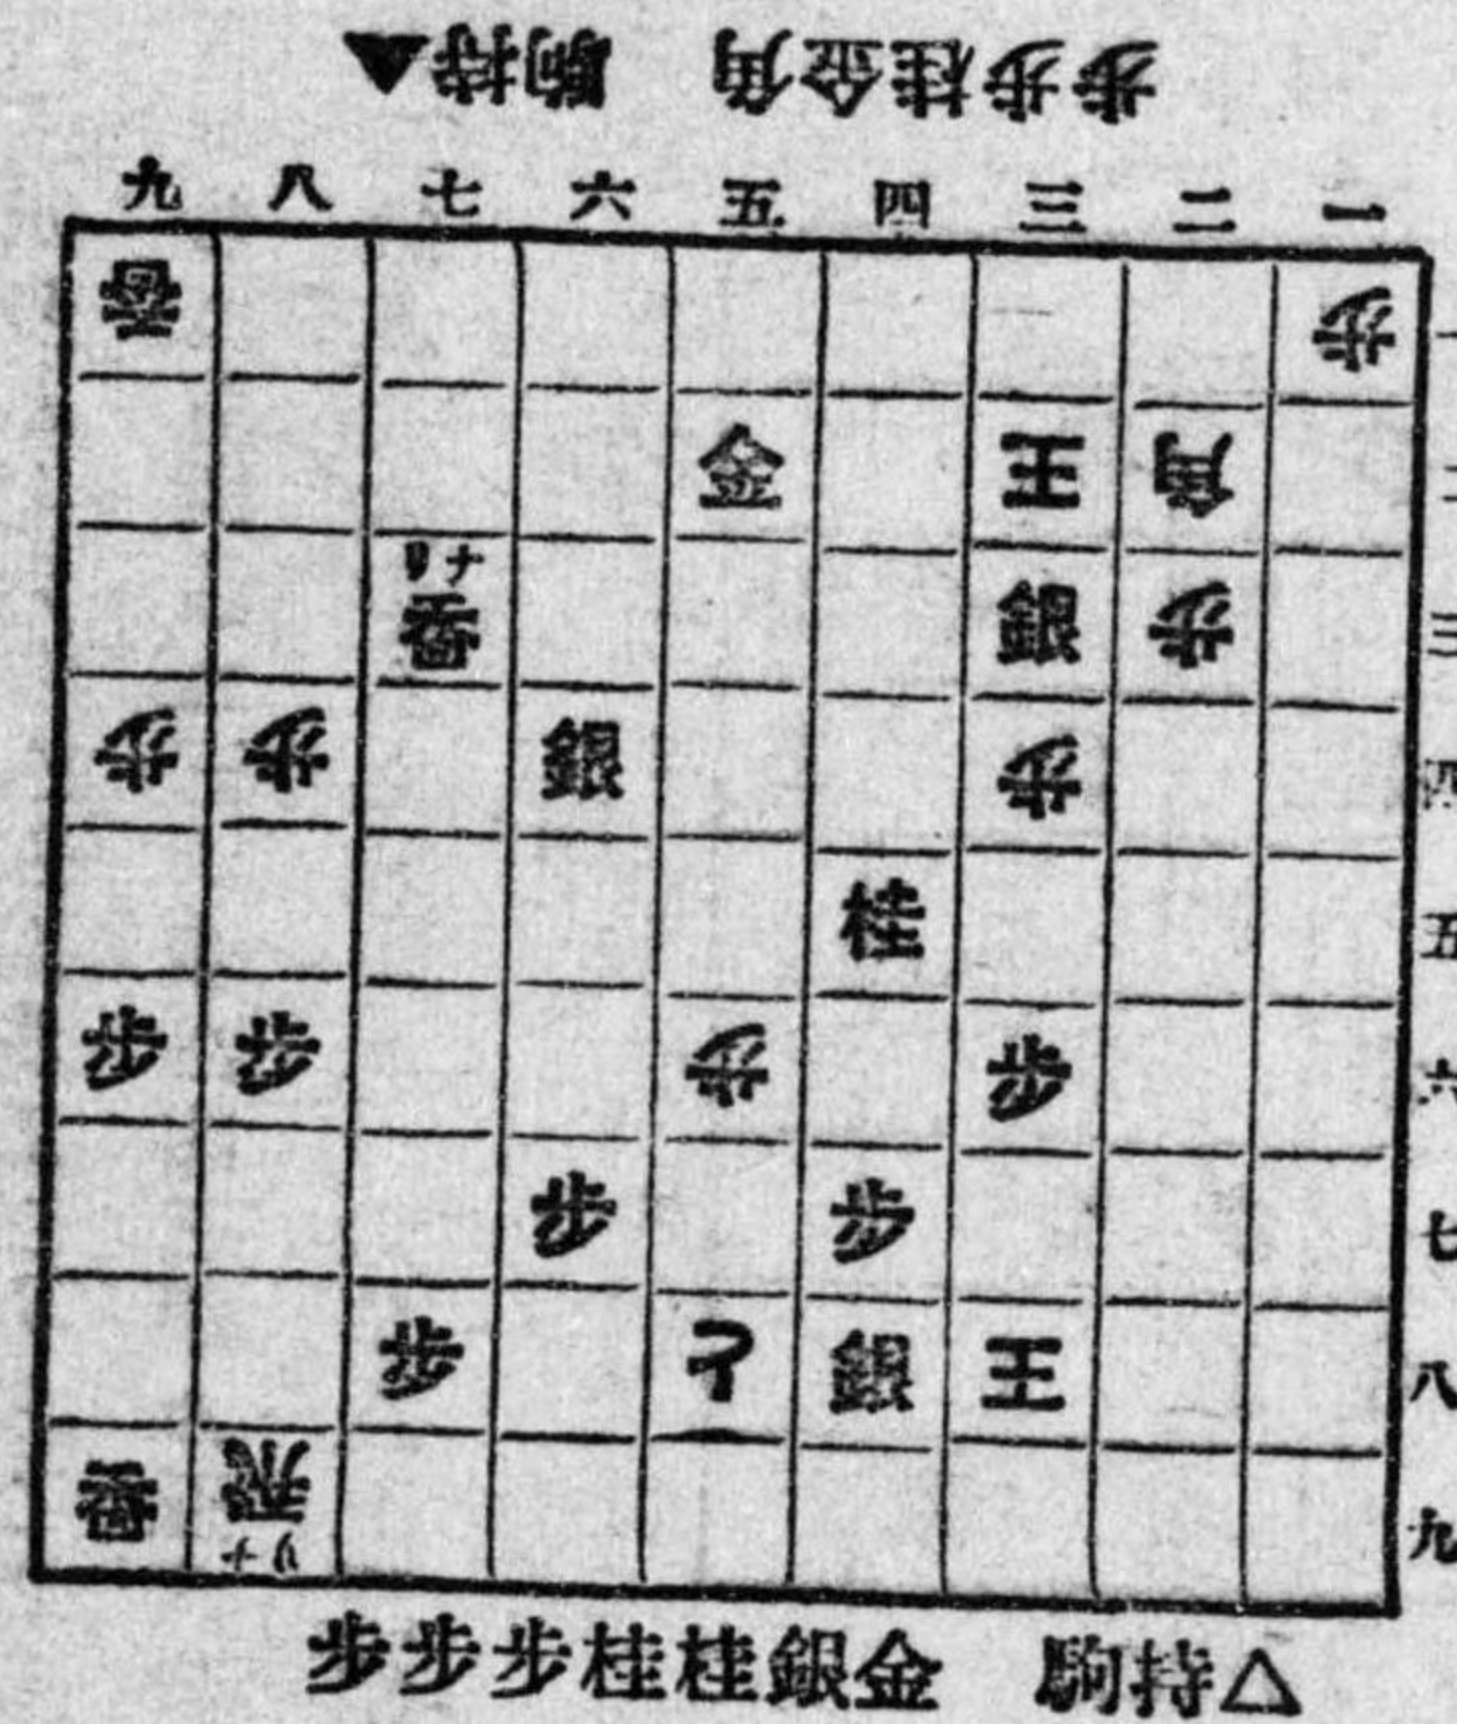 ▲持駒　角金桂歩歩
九 八 七 六 五 四 三 二 一
香 歩 一
金 王 角 二
ナリ
香 銀 歩 三
歩 歩 銀 歩 四
桂 五
歩 歩 歩 歩 六
歩 歩 七
歩 と 銀 王 八
香 飛 九
ナリ
△持駒　金銀桂桂歩歩歩